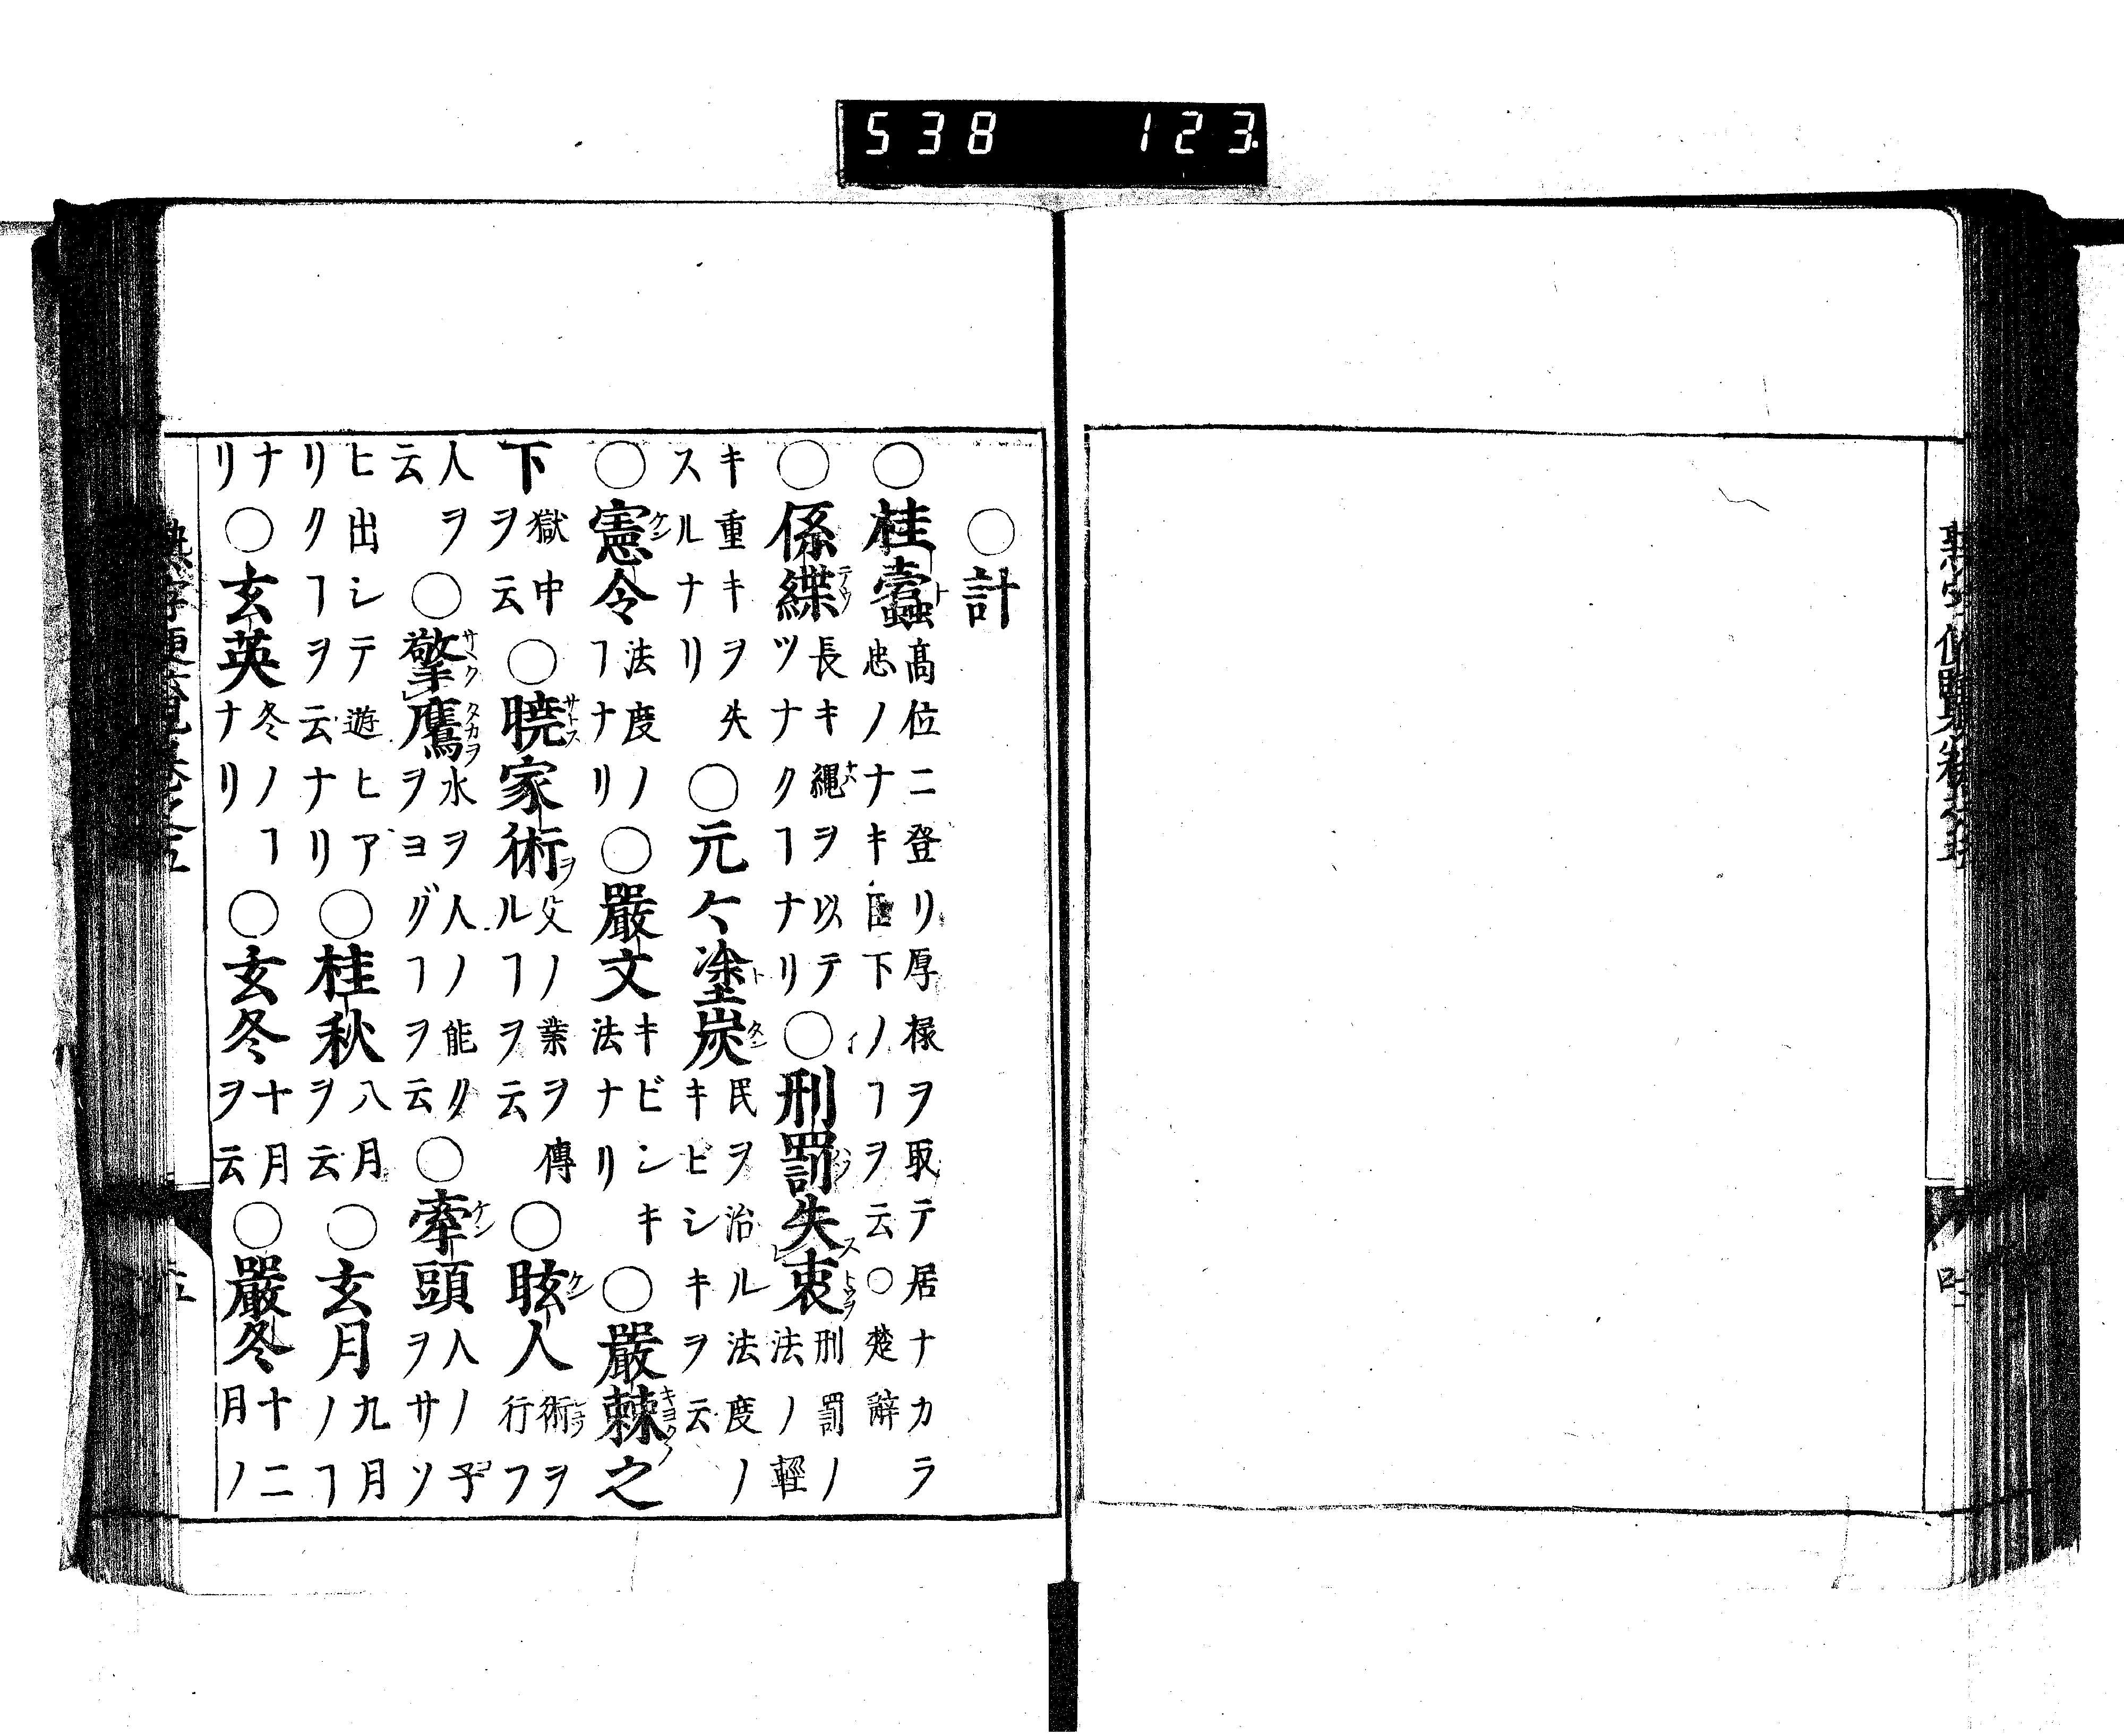 538 123
熟字便覽卷之五
○計
○桂蠹高位ニ登リ厚禄ヲ取テ居ナカラ忠ノナキ臣下ノヿヲ云○楚辭
○係緤長キ縄ヲ以テツナクヿナリ○刑罰失衷刑罰ノ法ノ輕
キ重キヲ失スルナリ○元々塗炭民ヲ治ル法度ノキビシキヲ云
○憲令法度ノヿナリ○嚴文キビシキ法ナリ○嚴棘之
下獄中ヲ云○曉家術父ノ業ヲ傳ルヿヲ云○眩人術ヲ行フ
人ヲ云○擎鷹水ヲ人ノ能クヲヨグヿヲ云○牽頭人ノ子ヲサソ
ヒ出シテ遊ヒアリクヿヲ云ナリ○桂秋八月ヲ云○玄月九月ノヿ
ナリ○玄英冬ノヿナリ○玄冬十月ヲ云○嚴冬十二月ノ
熟字便覽卷之五
五